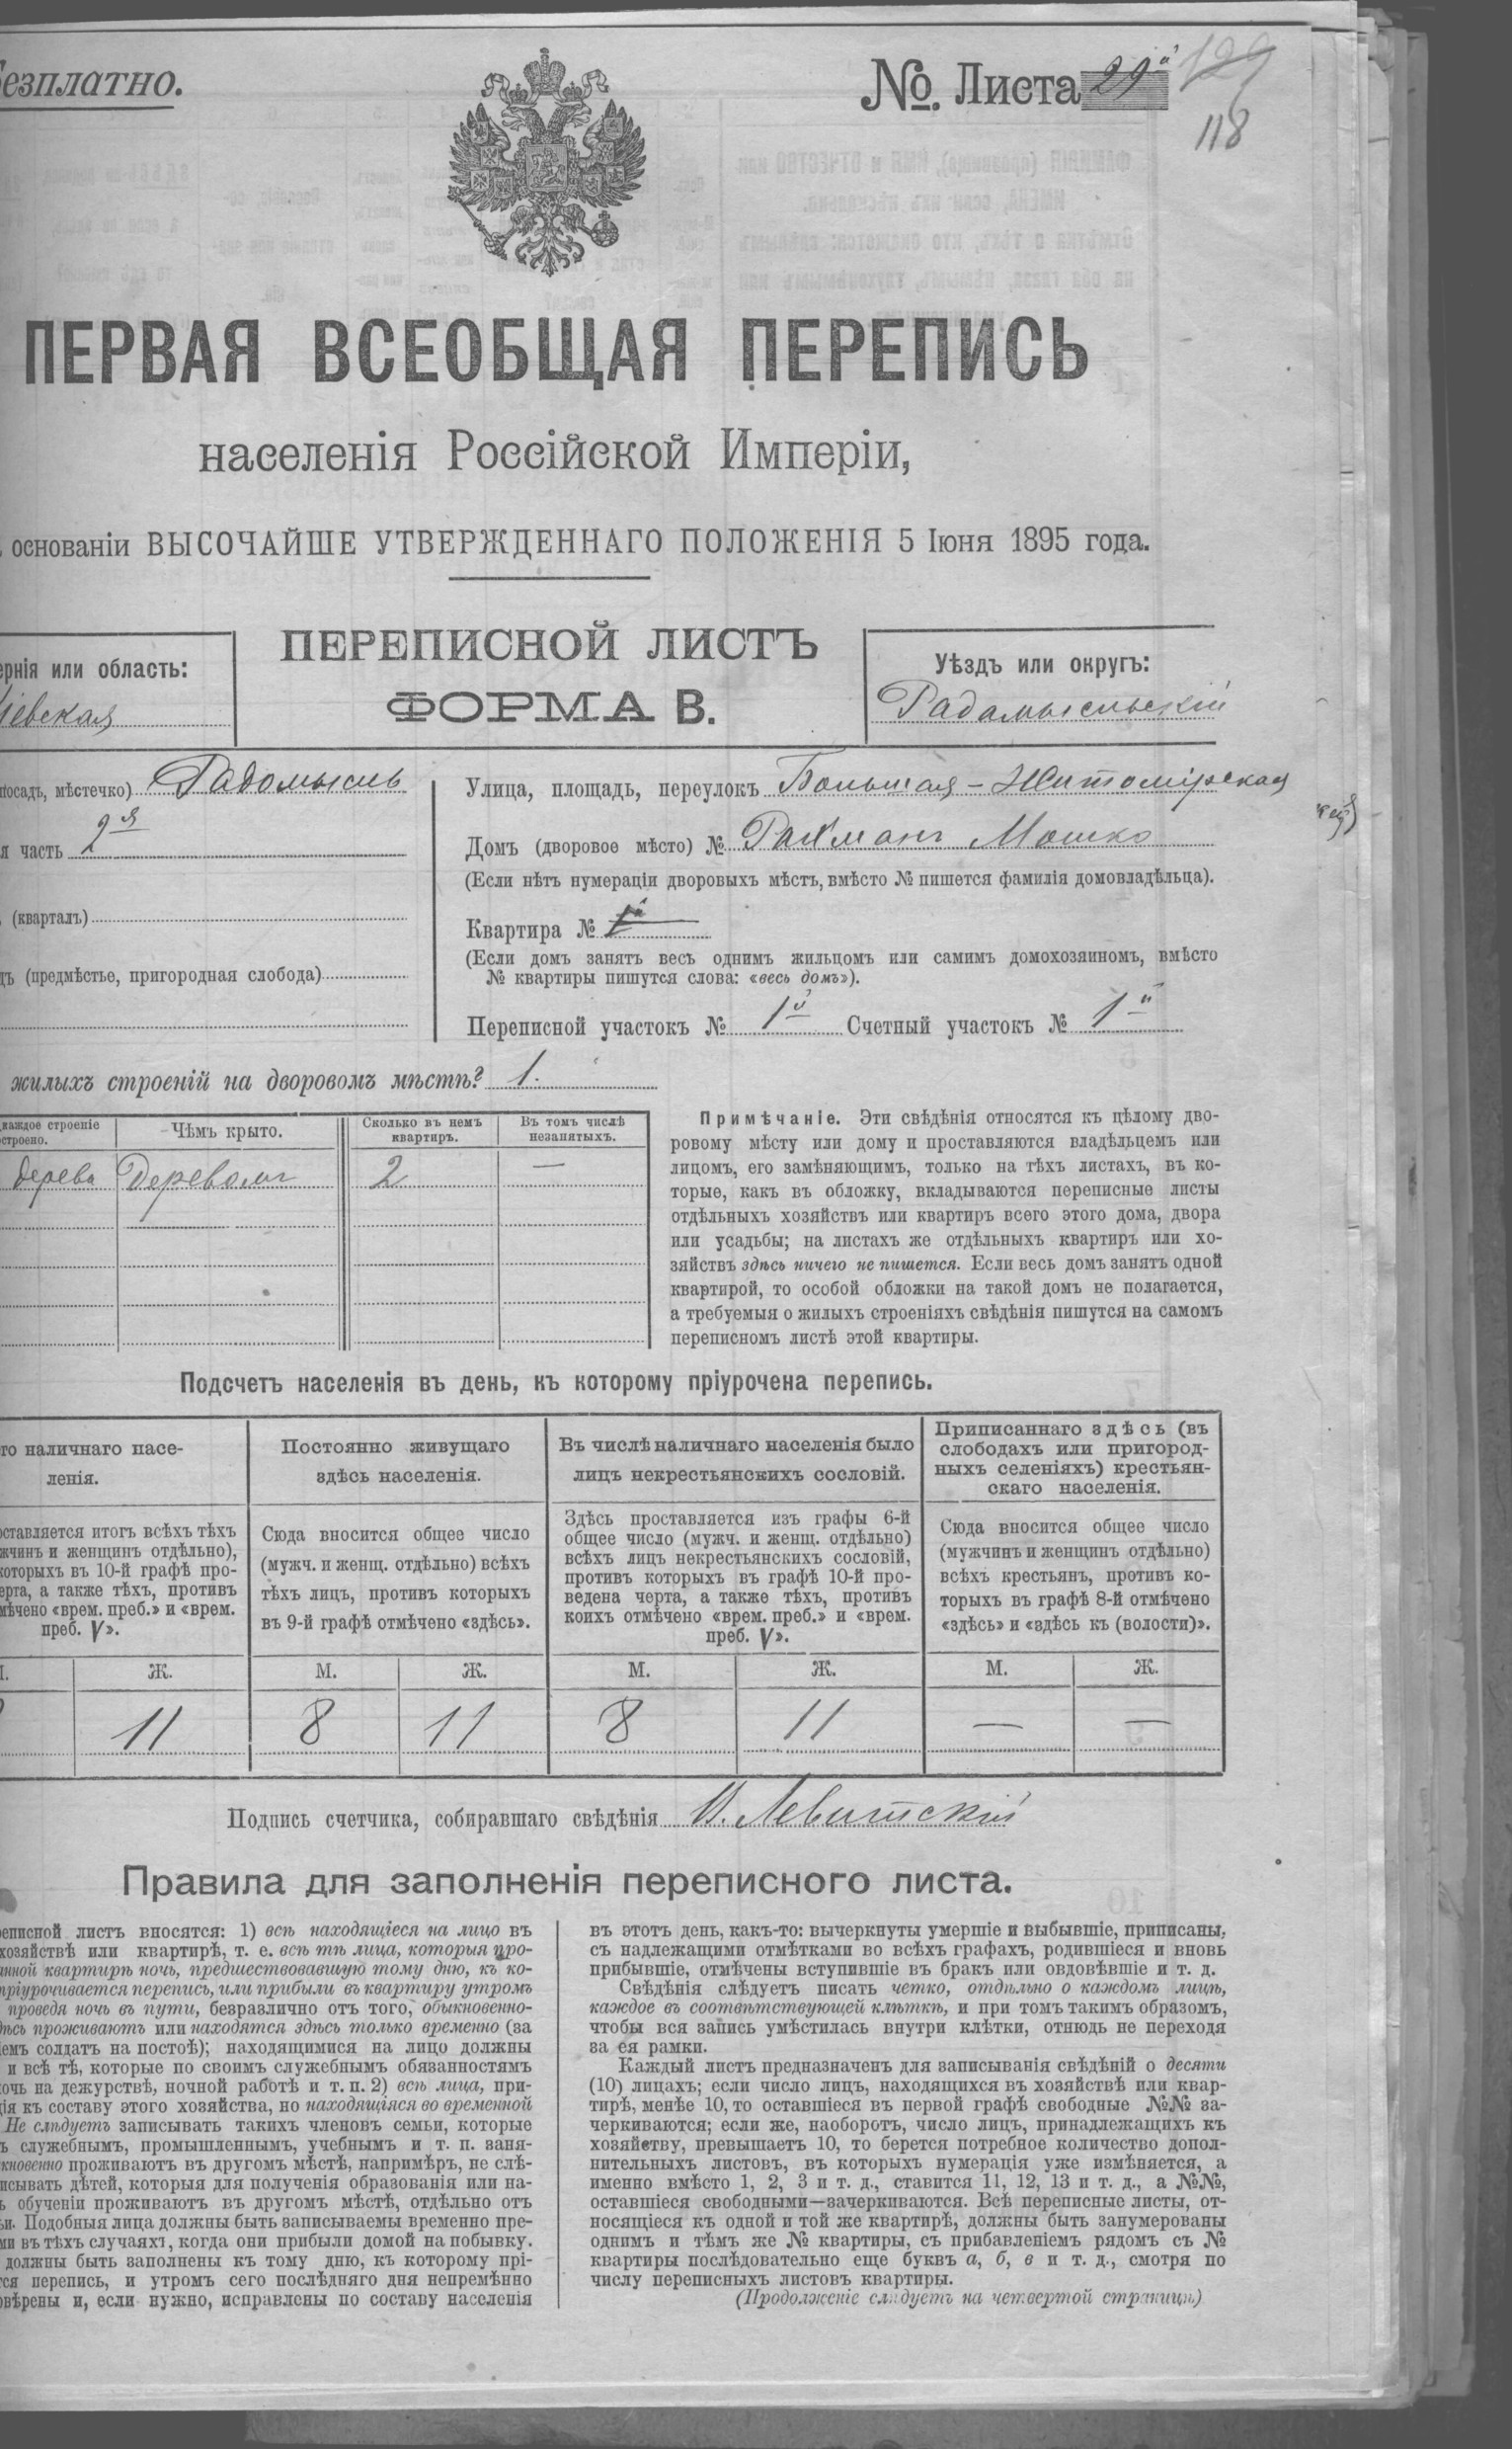 езплатно.
№. Листа 29й
118
ПЕРВАЯ ВСЕОБЩАЯ ПЕРЕПИСЬ
населенія Россійской Имперіи,
основаніи ВЫСОЧАЙШЕ УТВЕРЖДЕННАГО ПОЛОЖЕНІЯ 5 Іюня 1895 года.
ернія или область:
іевская
ПЕРЕПИСНОЙ ЛИСТЪ
ФОРМА В.
Уѣздъ или округъ:
Радамысльскій
посадъ, мѣстечко) Радомысль
я часть 2я
(кварталъ)
ъ (предмѣстье, пригородная слобода)
Улица, площадь, переулокъ Большая-Житомірская
Домъ (дворовое мѣсто) № Рахманъ Мошко
(Если нѣтъ нумераціи дворовыхъ мѣстъ, вмѣсто № пишется фамилія домовладѣльца).
Квартира №
(Если домъ занятъ весь однимъ жильцомъ или самимъ домохозяиномъ, вмѣсто
№ квартиры пишутся слова: «весь домъ»).
Переписной участокъ № 1й Счетный участокъ № 1й
жилыхъ строеній на дворовомъ мѣстѣ? 1.
каждое строеніе
строено.
Чѣмъ крыто.
Сколько въ немъ
квартиръ.
Въ томъ числѣ
незанятыхъ.
дерева Деревомъ 2 —
Примѣчаніе. Эти свѣдѣнія относятся къ цѣлому дво-
ровому мѣсту или дому и проставляются владѣльцемъ или
лицомъ, его замѣняющимъ, только на тѣхъ листахъ, въ ко-
торые, какъ въ обложку, вкладываются переписные листы
отдѣльныхъ хозяйствъ или квартиръ всего этого дома, двора
или усадьбы; на листахъ же отдѣльныхъ квартиръ или хо-
зяйствъ здѣсь ничего не пишется. Если весь домъ занятъ одной
квартирой, то особой обложки на такой домъ не полагается,
а требуемыя о жилыхъ строеніяхъ свѣдѣнія пишутся на самомъ
переписномъ листѣ этой квартиры.
Подсчетъ населенія въ день, къ которому пріурочена перепись.
го наличнаго насе-
ленія.
Постоянно живущаго
здѣсь населенія.
Въ числѣ наличнаго населенія было
лицъ некрестьянскихъ сословій.
Приписаннаго здѣсь (въ
слободахъ или пригород-
ныхъ селеніяхъ) крестьян-
скаго населенія.
оставляется итогъ всѣхъ тѣхъ
жчинъ и женщинъ отдѣльно),
которыхъ въ 10-й графѣ про-
ерта, а также тѣхъ, противъ
мѣчено «врем. преб.» и «врем.
преб. V».
Сюда вносится общее число
(мужч. и женщ. отдѣльно) всѣхъ
тѣхъ лицъ, противъ которыхъ
въ 9-й графѣ отмѣчено «здѣсь».
Здѣсь проставляется изъ графы 6-й
общее число (мужч. и женщ. отдѣльно)
всѣхъ лицъ некрестьянскихъ сословій,
противъ которыхъ въ графѣ 10-й про-
ведена черта, а также тѣхъ, противъ
коихъ отмѣчено «врем. преб.» и «врем.
преб. V».
Сюда вносится общее число
(мужчинъ и женщинъ отдѣльно)
всѣхъ крестьян, противъ ко-
торыхъ въ графѣ 8-й отмѣчено
«здѣсь» и «здѣсь къ (волости)».
Ж. М. Ж. М. Ж. М. Ж.
11 8 11 8 11 — —
Подпись счетчика, собиравшаго свѣдѣнія Левитскій
Правила для заполненія переписного листа.
еписной листъ вносятся: 1) всѣ находящіеся на лицо въ
хозяйствѣ или квартирѣ, т. е. всѣ тѣ лица, которыя про-
нной квартирѣ ночь, предшествовавшую тому дню, къ ко-
пріурочивается перепись, или прибыли въ квартиру утромъ
проведя ночь въ пути, безразлично отъ того, обыкновенно-
ѣсь проживаютъ или находятся здѣсь только временно (за
емъ солдатъ на постоѣ); находящимися на лицо должны
и всѣ тѣ, которые по своимъ служебнымъ обязанностямъ
очь на дежурствѣ, ночной работѣ и т. п. 2) всѣ лица, при-
ія къ составу этого хозяйства, но находящіяся во временной
Не слѣдуетъ записывать такихъ членовъ семьи, которые
ъ служебнымъ, промышленнымъ, учебнымъ и т. п. заня-
кновенно проживаютъ въ другомъ мѣстѣ, напримѣръ, не слѣ-
исывать дѣтей, которыя для полученія образованія или на-
ь обученіи проживаютъ въ другомъ мѣстѣ, отдѣльно отъ
ьи. Подобныя лица должны быть записываемы временно пре-
ми въ тѣхъ случаяхъ, когда они прибыли домой на побывку.
должны быть заполнены къ тому дню, къ которому прі-
тся перепись, и утромъ сего послѣдняго дня непремѣнно
овѣрены и, если нужно, исправлены по составу населенія
въ этотъ день, какъ-то: вычеркнуты умершіе и выбывшіе, приписаны,
съ надлежащими отмѣтками во всѣхъ графахъ, родившіеся и вновь
прибывшіе, отмѣчены вступившіе въ бракъ или овдовѣвшіе и т. д.
Свѣдѣнія слѣдуетъ писать четко, отдѣльно о каждомъ лицѣ,
каждое въ соотвѣтствующей клѣткѣ, и при томъ такимъ образомъ,
чтобы вся запись умѣстилась внутри клѣтки, отнюдь не переходя
за ея рамки.
Каждый листъ предназначенъ для записыванія свѣдѣній о десяти
(10) лицахъ; если число лицъ, находящихся въ хозяйствѣ или квар-
тирѣ, менѣе 10, то оставшіеся въ первой графѣ свободные №№ за-
черкиваются; если же, наоборотъ, число лицъ, принадлежащихъ къ
хозяйству, превышаетъ 10, то берется потребное количество допол-
нительныхъ листовъ, въ которыхъ нумерація уже измѣняется, а
именно вмѣсто 1, 2, 3 и т. д., ставится 11, 12, 13 и т. д., а №№,
оставшіеся свободными—зачеркиваются. Всѣ переписные листы, от-
носящіеся къ одной и той же квартирѣ, должны быть занумерованы
однимъ и тѣмъ же № квартиры, съ прибавленіемъ рядомъ съ №
квартиры послѣдовательно еще буквъ а, б, в и т. д., смотря по
числу переписныхъ листовъ квартиры.
(Продолженіе слѣдуетъ на четвертой страницѣ)